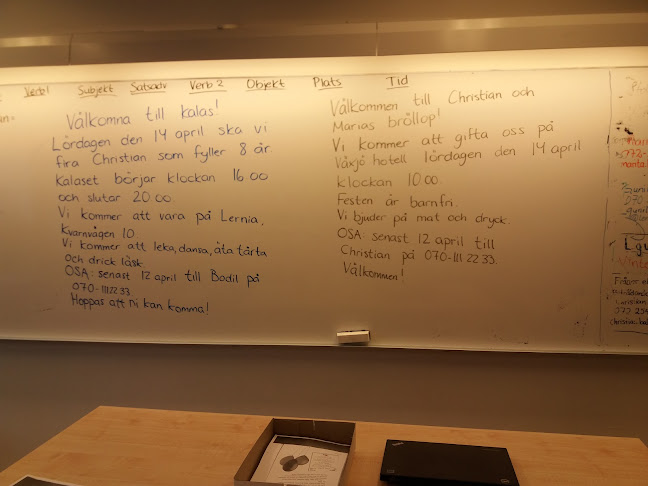 Verb1 Subjekt Satsadv Verb 2 Objekt Plats Tid
Välkomna till kalas!
Lördagen den 14 april ska vi
fira Christian som fyller 8 år.
Kalaset börjar klockan 16.00
och slutar 20.00.
Vi kommer att vara på Lernia,
Kvarnvägen 10.
Vi kommer att leka, dansa, äta tårta
och drick läsk.
OSA: senast 12 april till Bodil på
070-111 22 33
Hoppas att Ni kan komma!
Välkommen till Christian och
Marias bröllop!
Vi kommer att gifta oss på
Växjö hotell lördagen den 14 april
klockan 10.00.
Festen är barnfri.
Vi bjuder på mat och dryck.
OSA: senast 12 april till
Christian på 070-111 22 33.
Välkommen!